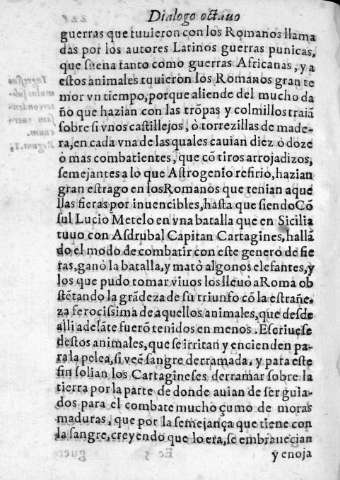 Dialogo octauo
guerras que tuuieron con los Romanos llama
das por los autores Latinos guerras punicas,
que suena tanto como guerras Africanas, y a
estos animales tuuieron los Romanos gran te
mor vn tiempo, porque aliende del mucho da
ño que hazian con las trõpas y colmillos traiã
sobre si vnos castillejos, ò torrezillas de made-
ra, en cada vna de las quales cauian diez ò doze
ò mas combatientes, que cõ tiros arrojadizos,
semejantes a lo que Astrogenio refirio, hazian
gran estrago en los Romanos que tenian aque
llas fieras por inuencibles, hasta que siendo Cõ
sul Lucio Metelo en vna batalla que en Sicilia
tuuo con Asdrubal Capitan Cartagines, hallã
do el modo de combatir con este genero de fie
ras, ganò la batalla, y matò algunos elefantes, y
los que pudo tomar viuos los lleuò a Roma ob
stẽtando la grãdeza de su triunfo cõ la estrañe,
za ferocissima de aquellos animales, que desde
alli adelãte fuerõ tenidos en menos. Escriuese
destos animales, que se irritan y encienden pa-
ra la pelea, si veẽ sangre derramada, y para este
fin solian los Cartagineses derramar sobre la
tierra por la parte de donde auian de ser guia-
dos para el combate mucho çumo de moras
maduras, que por la semejança que tiene con
la sangre, creyendo que lo era, se embrauecian
y enoja